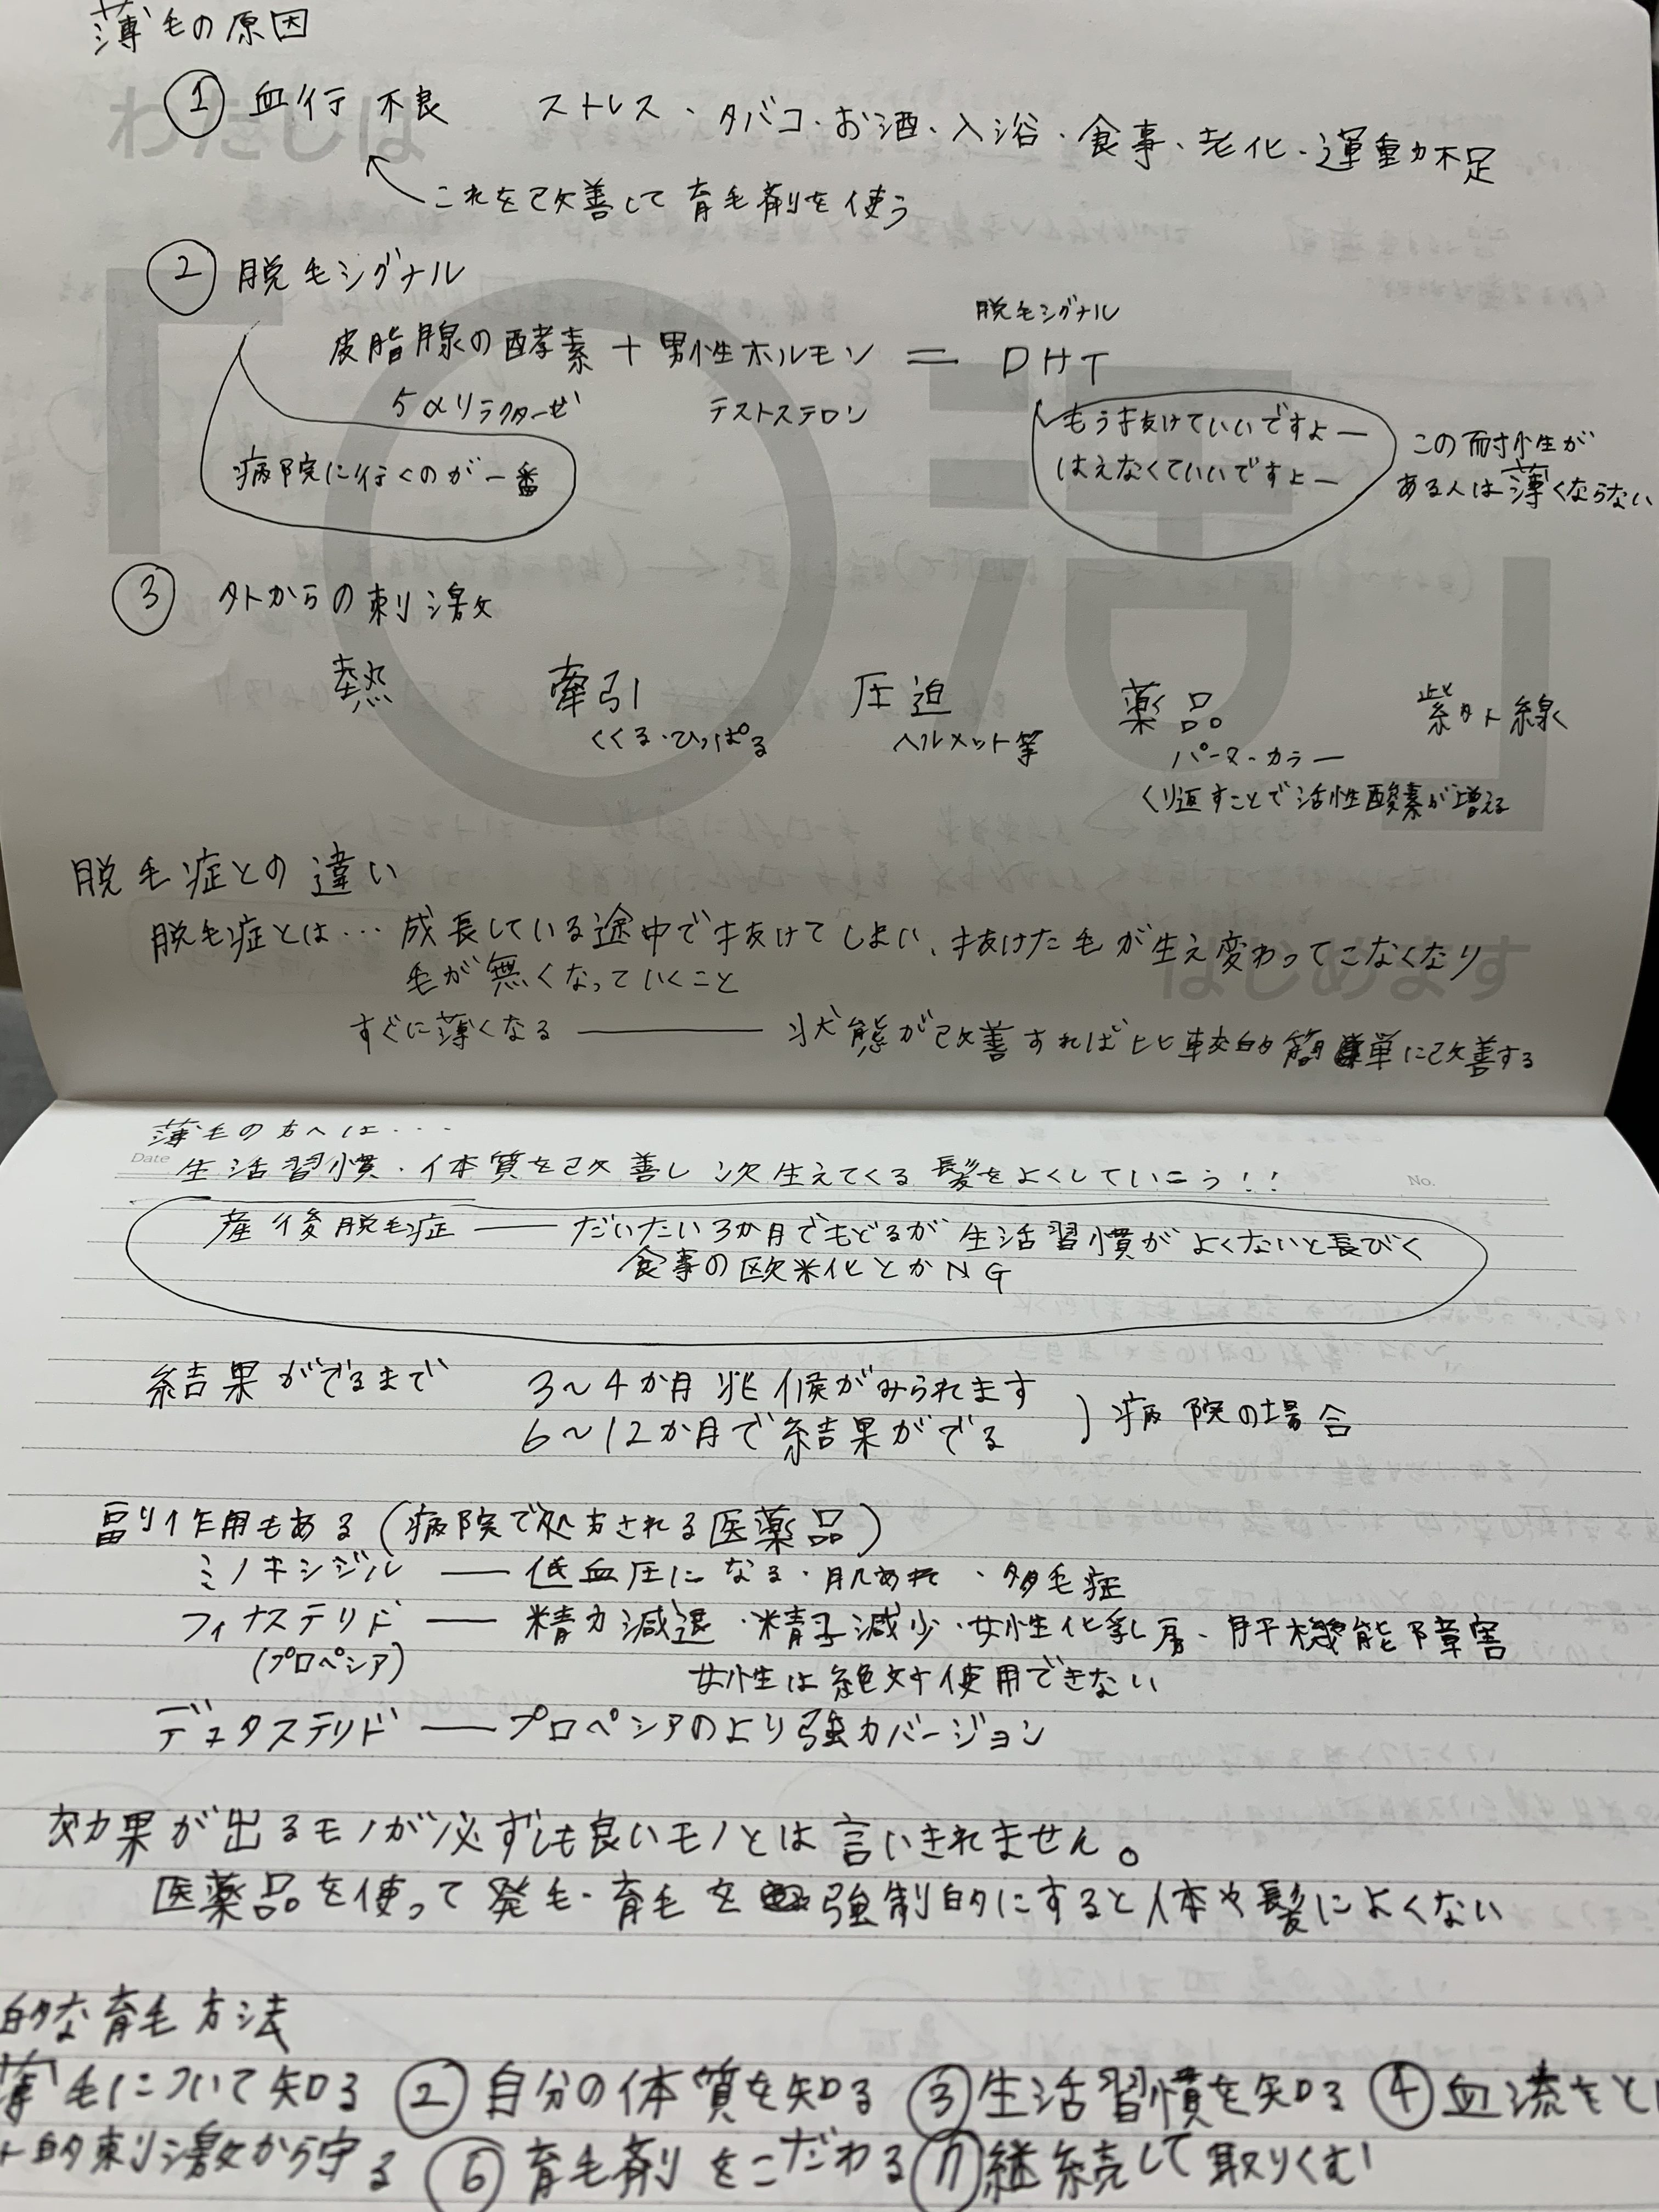 薄毛の原因
① 血行不良 ストレス・タバコ・お酒・入浴・食事・老化・運動不足
これを改善して育毛剤を使う
② 脱毛シグナル
脱毛シグナル
皮脂腺の酵素 + 男性ホルモン = DHT
5αリラクターゼ テストステロン
もう抜けていいですよー
はえなくていいですよー
この耐性が
ある人は薄くならない
病院に行くのが一番
③ 外からの刺激
熱 牽引 圧迫 薬品 紫外線
くくる・ひっぱる ヘルメット等 パーマ・カラー
くり返すことで活性酸素が増える
脱毛症との違い
脱毛症とは… 成長している途中で抜けてしまい、抜けた毛が生え変わってこなくなり
毛が無くなっていくこと
すぐに薄くなる ―― 状態が改善すれば比較的簡単に改善する
わたしは
「〇活」
はじめます
薄毛の方へは…
Date
No.
生活習慣・体質を改善し次生えてくる髪をよくしていこう!!
産後脱毛症 ―― だいたい3か月でもどるが生活習慣がよくないと長びく
食事の欧米化とかNG
結果がでるまで 3〜4か月 兆候がみられます
6〜12か月で結果がでる
病院の場合
副作用もある(病院で処方される医薬品)
ミノキシジル ―― 低血圧になる・肌あれ・多毛症
フィナステリド ―― 精力減退・精子減少・女性化乳房・肝機能障害
(プロペシア) 女性は絶対使用できない
デュタステリド ―― プロペシアのより強力バージョン
効果が出るモノが必ずしも良いモノとは言いきれません。
医薬品を使って発毛・育毛を強制的にすると体や髪によくない
的な育毛方法
薄毛について知る ② 自分の体質を知る ③ 生活習慣を知る ④ 血流をと
的刺激から守る ⑥ 育毛剤をこだわる ⑦ 継続して取りくむ